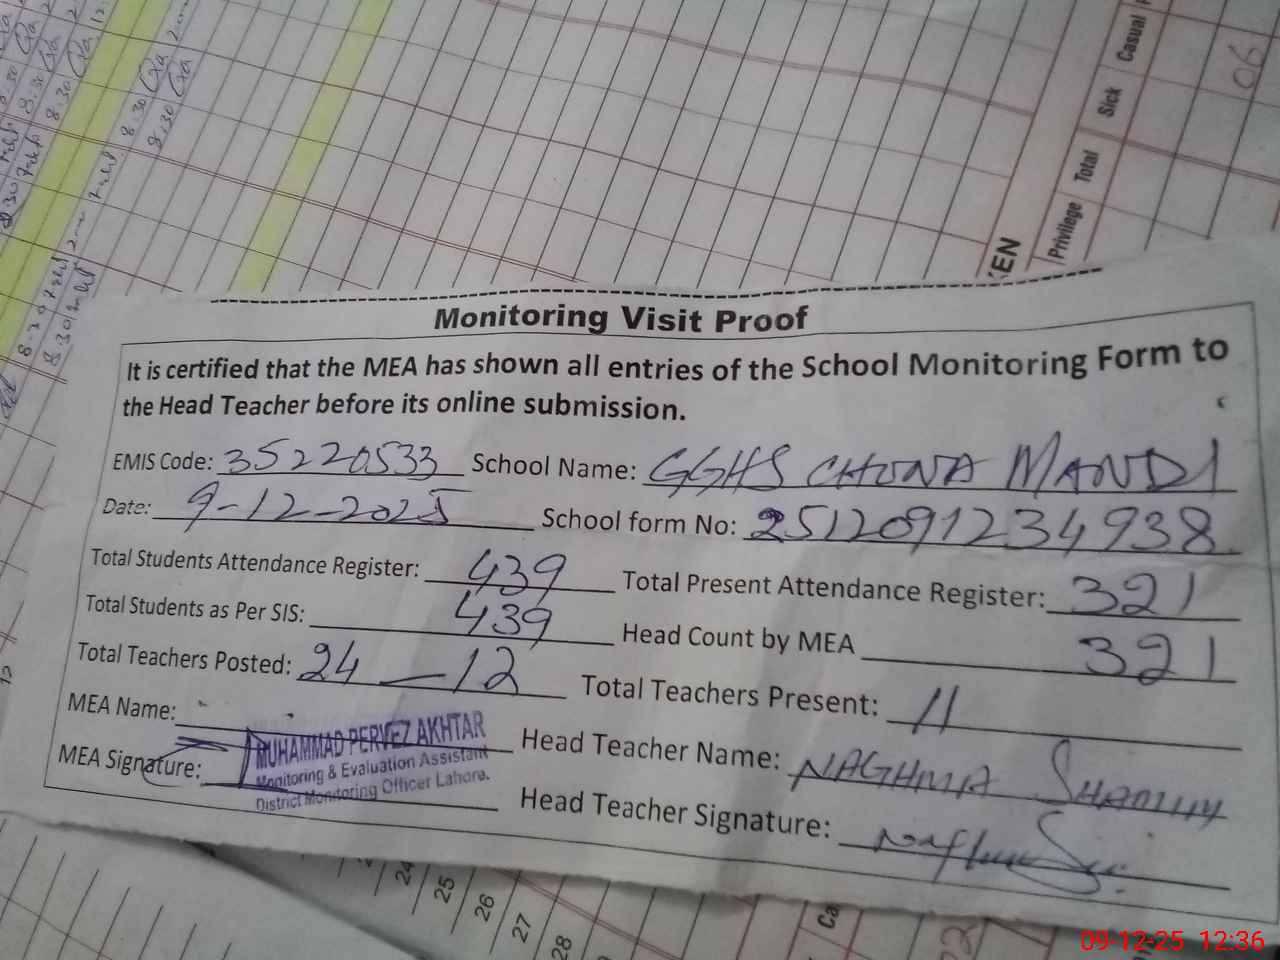 Casual
Sick
Total
Privilege
06
KEN
8.30
8.30
8.30
8.30
8.30
Monitoring Visit Proof
It is certified that the MEA has shown all entries of the School Monitoring Form to
the Head Teacher before its online submission.
EMIS Code: 35220533 School Name: GGHS CHUNA MANDI
Date: 9-12-2025 School form No: 2512091234938
Total Students Attendance Register: 439 Total Present Attendance Register: 321
Total Students as Per SIS: 439 Head Count by MEA 321
Total Teachers Posted: 24 — 12 Total Teachers Present: 11
MEA Name: Head Teacher Name: NAGHMA
MUHAMMAD PERVEZ AKHTAR
Monitoring & Evaluation Assistant
District Monitoring Officer Lahore.
MEA Signature: Head Teacher Signature:
24
25
26
27
28
Ca
12
09-12-25 12:36